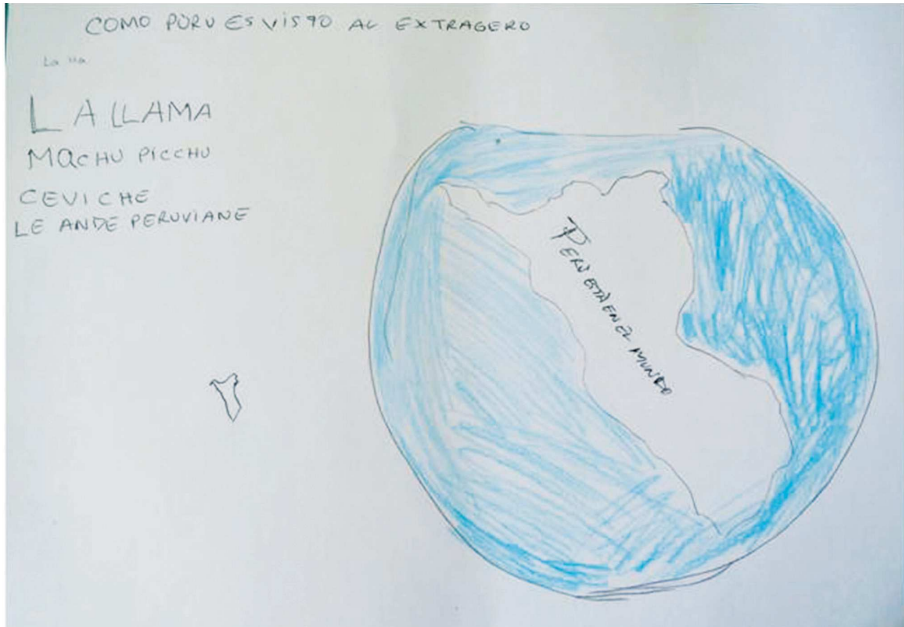 COMO PURU ES VISTO AL EXTRAGERO
La lla
LA LLAMA
MACHU PICCHU
CEVICHE
LE ANDE PERUVIANE
PERU ESTA EN EL MUNDO